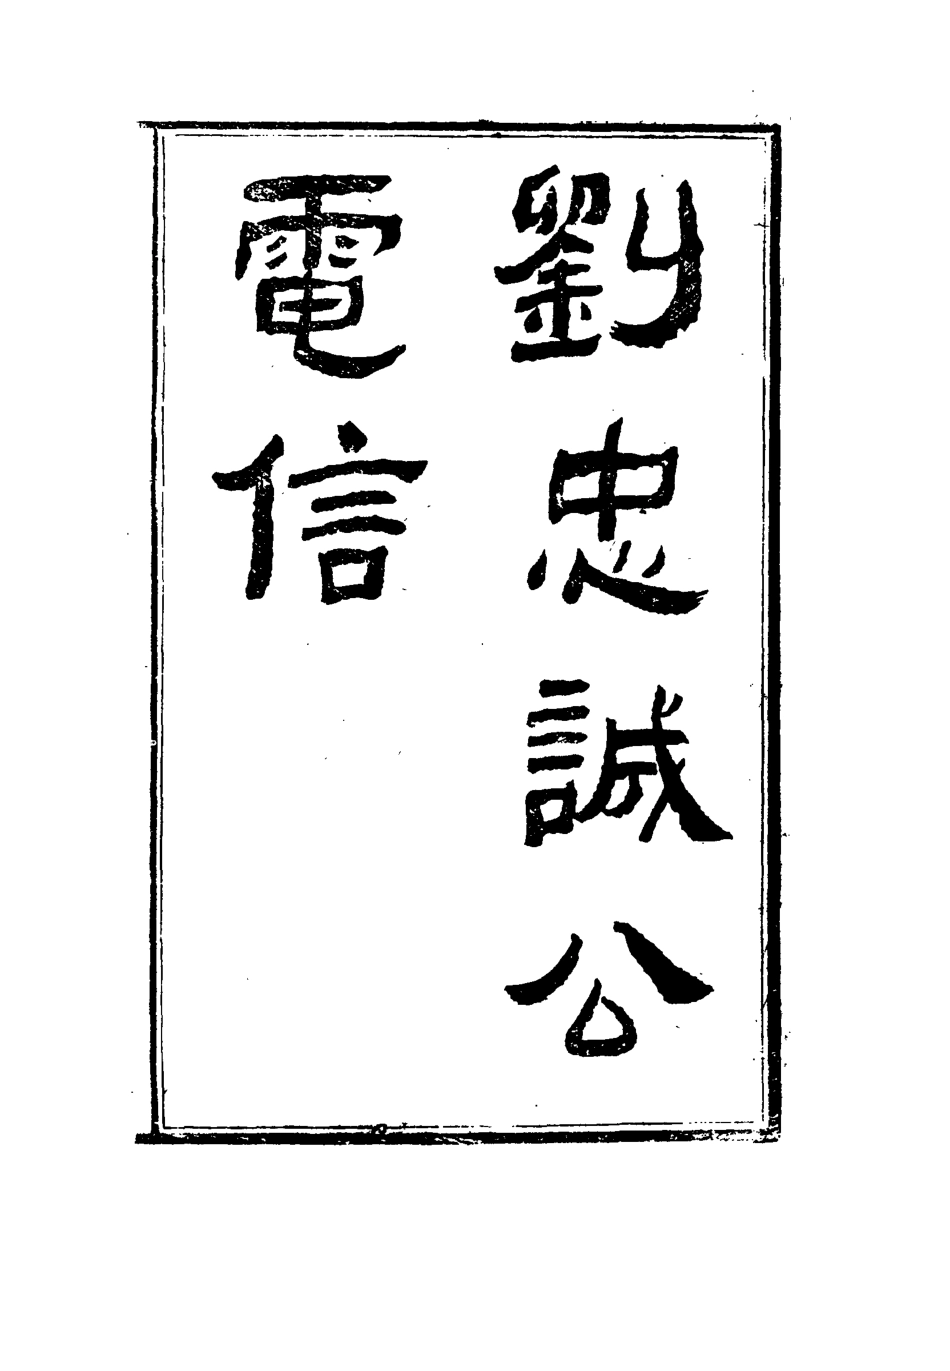 劉忠誠公
電信